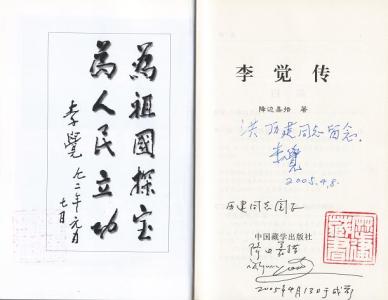 為祖國探寶
為人民立功
李覺
七二年元月
七日
李觉传
降边嘉措 著
洪历建同志留念.
李覺
2005.4.8.
历建同志留念
中国藏学出版社
降边嘉措
2005年4月13日于成都
藏書